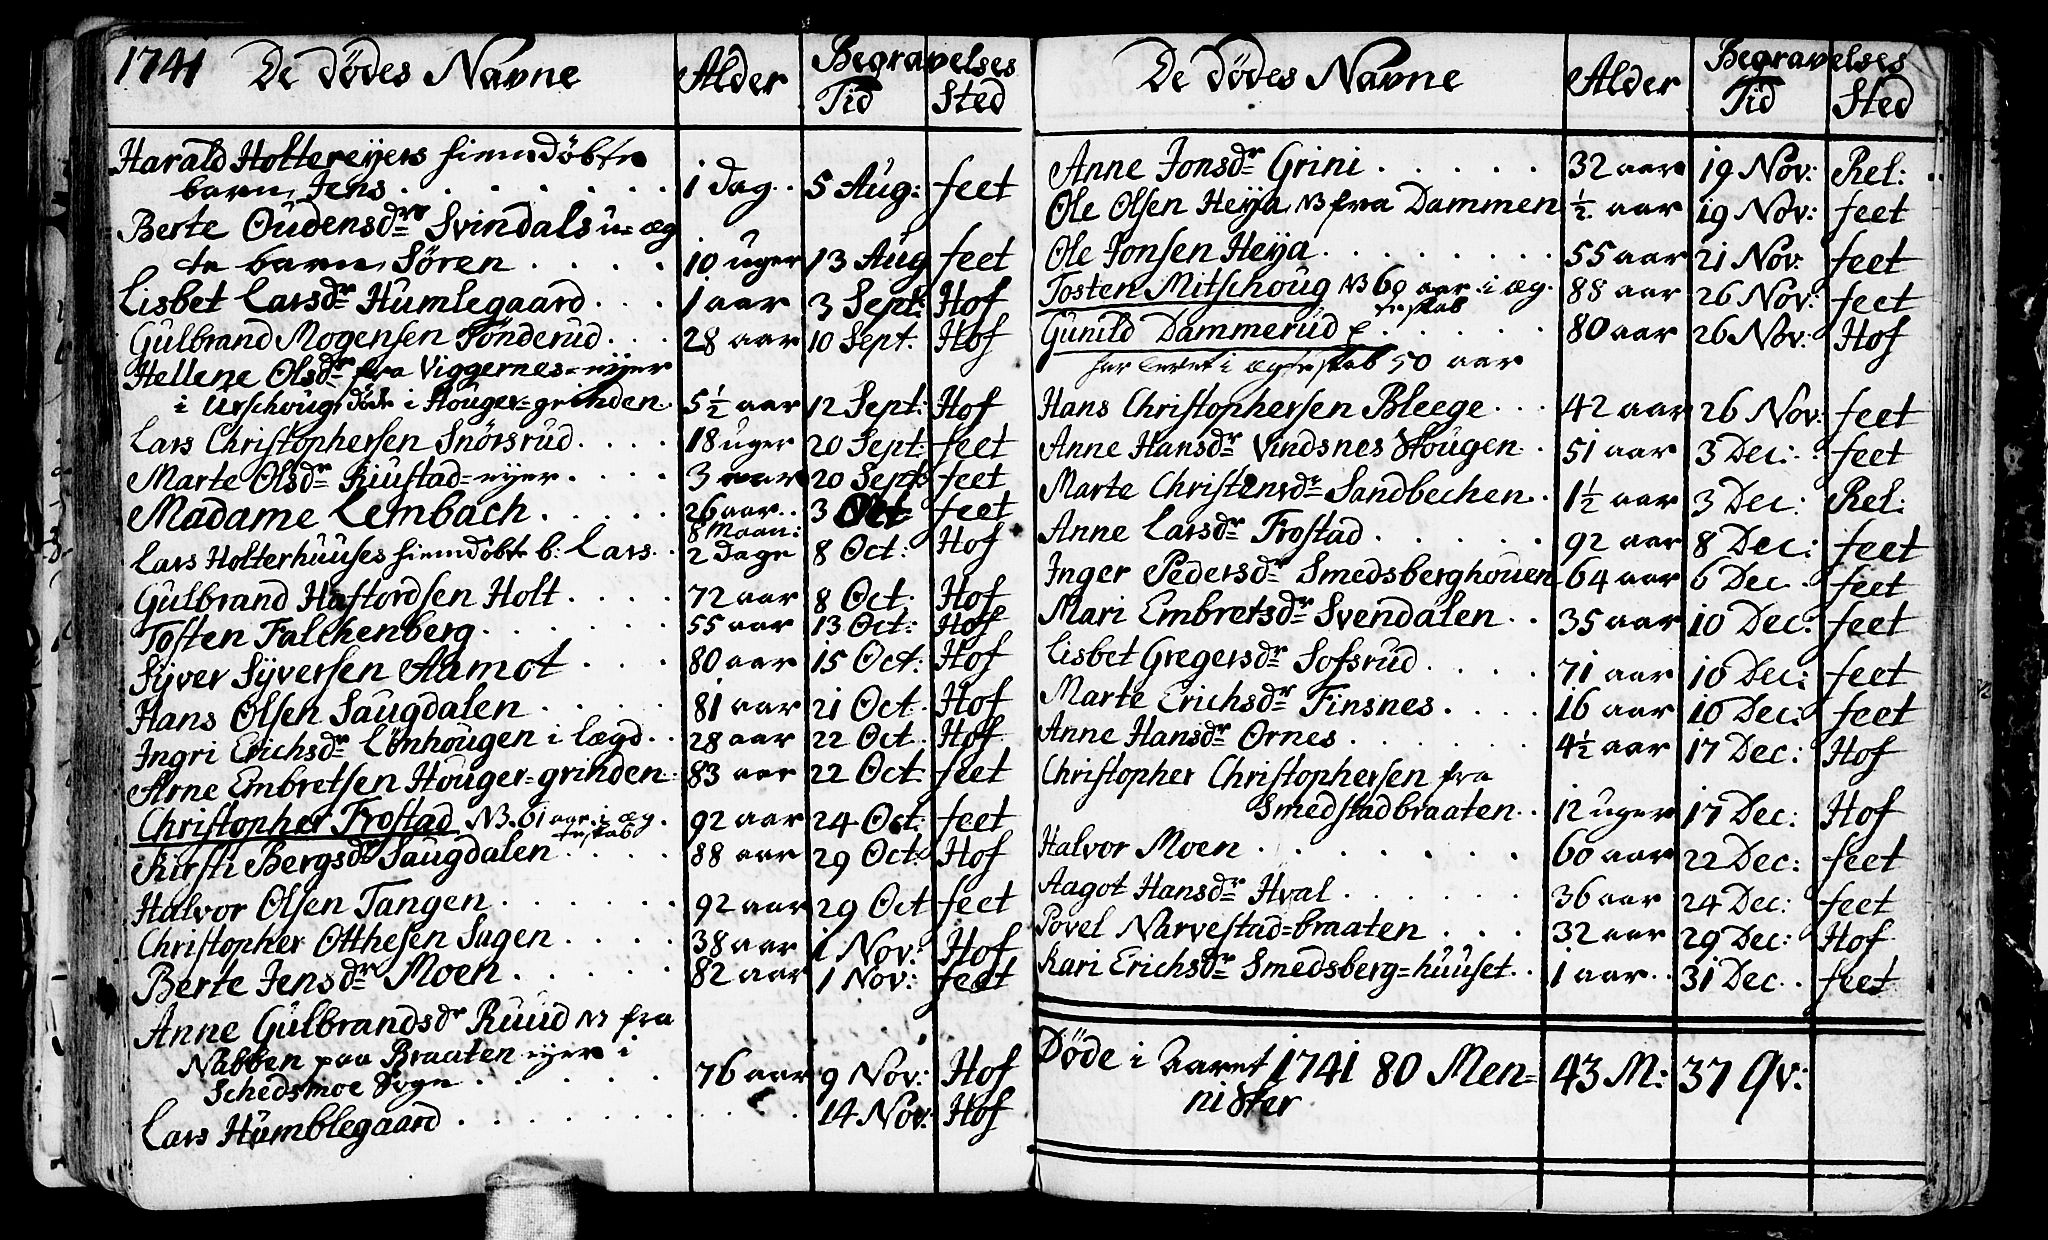 1741 De Dödes Navne Alder Begravelses
Tid Sted
Harald Holtereyers hiemdöbte
barn Jens . . . . . . . 1 Dag . . 5 Aug: feet
Berte Oudensdr Svindals u=æg
te barn Sören . . . . 10 uger 13 Aug feet
Lisbet Larsdr Humlegaard . . . 1 aar 3 Sept: Hof
Gulbrand Mogensen Tönderud . . . 28 aar 10 Sept. Hof
Hellene Olsdr fra Viggernes=eyer
i Urschoug döde i Houger=grinden 5½ aar 12 Sept: Hof
Lars Christophersen Snörsrud . . . . 18 uger 20 Sept: feet
Marte Olsdr Riustad=eyer . . . . 3 aar 20 Sept feet
Madame Lembach . . . . . 26 aar . . 3 Oct: feet
8 Maan:
Lars Holterhuuses hiemdöbte b: Lars . . 2 Dage 8 Oct: Hof
Gulbrand Haftordsen Holt . . . . 72 aar 8 Oct: Hof
Tosten Falchenberg . . . . . . 55 aar 13 Oct: Hof
Syver Syversen Aamot . . . 80 aar 15 Oct: Hof
Hans Olsen Saugdalen . . . . 81 aar 21 Oct. Hof
Ingri Erichsdr Lonhougen i lægd . . 28 aar 22 Oct. Hof
Arne Embretsen Houger=grinden . 83 aar 22 Oct: feet
Christopher Frostad NB. 61 aar i æg. 92 aar 24 Oct: feet
teskab
Kirsti Bergsdr Saugdalen . . . . 88 aar 29 Oct: Hof
Halvor Olsen Tangen . . . . . . 92 aar 29 Oct feet
Christopher Otthesen Sagen . . . . 38 aar 1 Nov: Hof
Berte Jensdr Moen . . . . . 82 aar 1 Nov: feet
Anne Gulbrandsdr Ruud NB fra
Nabben paa Braaten eyer i
Schedsmoe Sogn . . . . . 76 aar 9 Nov: Hof
Lars Humblegaard . . . . . . . . . . 14 Nov: Hof
De Dödes Navne Alder Begravelses
Tid Sted
Anne Jonsdr Grini . . . . . 32 aar 19 Nov: Rel: . .
Ole Olsen Heya NB fra Dammen ½ aar 19 Nov: feet
Ole Jonsen Heya . . . . . . . . 55 aar 21 Nov: feet
Tosten Mitschoug NB 60 aar i æg. 88 aar 26 Nov: feet
teskab
Gunild Dammerud . . . . . 80 aar 26 Nov: Hof
har levet i ægteskab 50 aar
Hans Christophersen Bleege . . . 42 aar 26 Nov: feet
Anne Hansdr Vindsnes Hougen . . 51 aar 3 Dec: feet
Marte Christensdr Sandbechen . 1½ aar 3 Dec: Rel:
Anne Larsdr Frostad . . . . . 92 aar 8 Dec: feet
Inger Pedersdr Smedsberghouen 64 aar 6 Dec . feet
Mari Embretsdr Svendalen . . 35 aar 10 Dec: feet
Lisbet Gregersdr Sofsrud . . . . 71 aar 10 Dec: feet
Marte Erichsdr Finsnes . . . . 16 aar 10 Dec: feet
Anne Hansdr Ornes . . . . . . 4½ aar 17 Dec: Hof
Christopher Christophersen fra
Smedstadbraaten . . 12 uger 17 Dec: Hof
Halvor Moen . . . . . . . 60 aar 22 Dec: feet
Aagot Hansdr Hval . . . . . 36 aar 24 Dec: feet
Povel Narvestad=braaten . . . 32 aar 29 Dec: Hof
Kari Erichsdr Smedsberg=huuset . . 1 aar . . 31 Dec . . feet
Döde i Aaret 1741 80 Men= 43 M: 37 Qv:
nisker